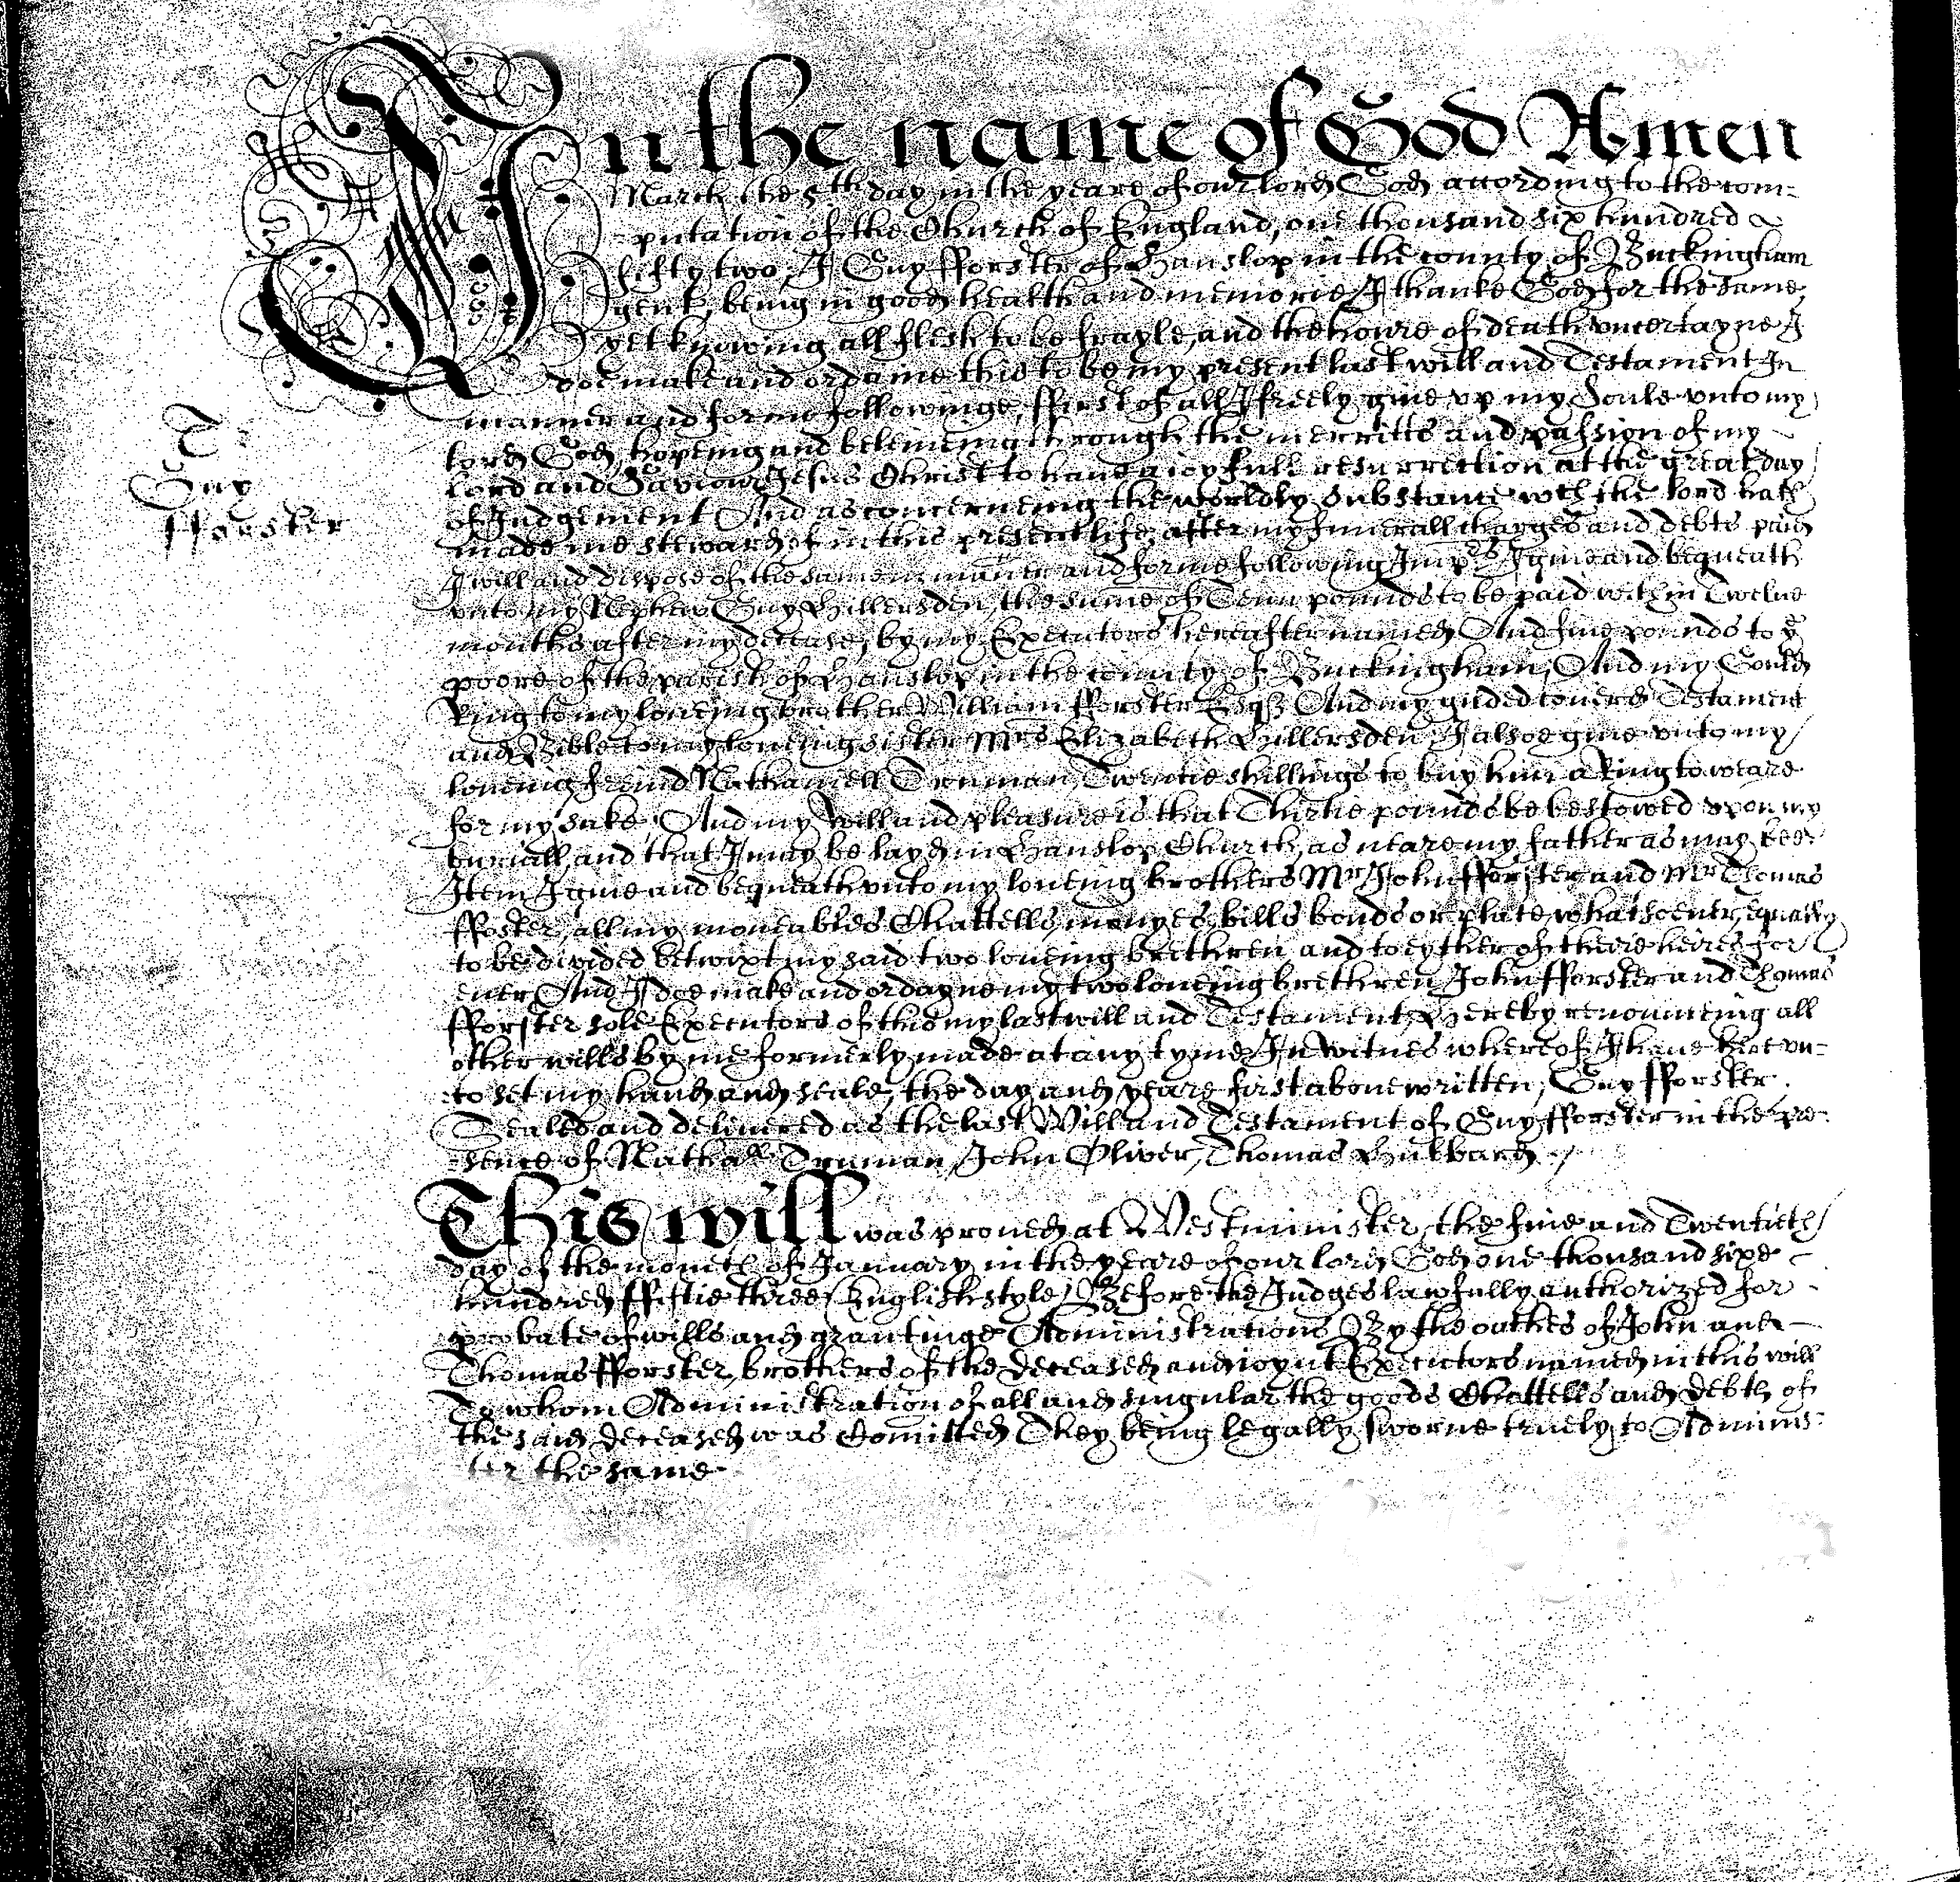 In the name of God Amen
March the 5th day in the yeare of our lord God according to the com=
=putation of the Church of England, one thousand six hundred
fifty two, I Guy fforster of Hanslop in the county of Buckingham
gent, being in good health and memorie I thanke God for the same,
yet knowing all flesh to be frayle, and the houre of death vncertayne I
doe make and ordaine this to be my present last will and Testament In
manner and forme followinge, ffirst of all I freely giue vp my Soule vnto my
T:
Guy
fforster
lord God hopeing and beleiueing through the merritts and passion of my
lord and Saviour Jesus Christ to haue a ioyfull resurrection at the great day
of Judgement And as concerneing the worldly substance wch the lord hath
made me steward of in this present life, after my funerall charges and debts paid
I will and dispose of the same in manner and forme following Imprs I giue and bequeath
vnto my Nephew Guy Hillersden, the sume of Tenn pounds to be paid within Twelue
months after my decease, by my Executors hereafter named And fiue pounds to ye
poore of the parish of Hanslop in the county of Buckingham, And my Gould
Ring to my loueing brother William fforster Esqr And my guded couered Testament
and Bible to my loueing sister Mrs Elizabeth Hillersden, I alsoe giue vnto my
loueing freind Nathaniell Truman, Twentie shillings to buy him a Ring to weare
for my sake, And my Will and pleasure is that Thirtie pounds be bestowed vpon my
buriall, and that I may be layd in Hanslop Church, as neare my father as may bee
Item I giue and bequeath vnto my loueing brothers Mr John fforster and Mr Thomas
fforster, all my moueables Chattells, monyes, bills bonds or plate, whatsoeuer, equally
to be divided betwixt my said two loueing brethren and to eyther of theire heires for
euer And I doe make and ordayne my two loueing brethren John fforster and Thomas
fforster sole Executors of this my last will and Testament, Hereby renouncing all
other wills by me formerly made at any tyme, In Witnes whereof I haue here vn=
=to set my hand and seale, the day and yeare first aboue written, Guy fforster.
Sealed and deliuered as the last Will and Testament of Guy fforster in the pre=
=sence of Nathall Truman, John Oliver, Thomas Hubbard
This will was proued at Westminister, the fiue and Twentieth
day of the month of January in the yeare of our lord God one thousand sixe
hundred ffiftie three (English style) Before the Judges lawfully authorized for
probate of wills and grantinge Administrations By the oathes of John and
Thomas fforster, brothers of the deceased and ioynt Executors named in this will
To whom Administration of all and singular the goods Chattells and debts of
the said deceased was Comitted They being legally sworne truely to Adminis=
ter the same